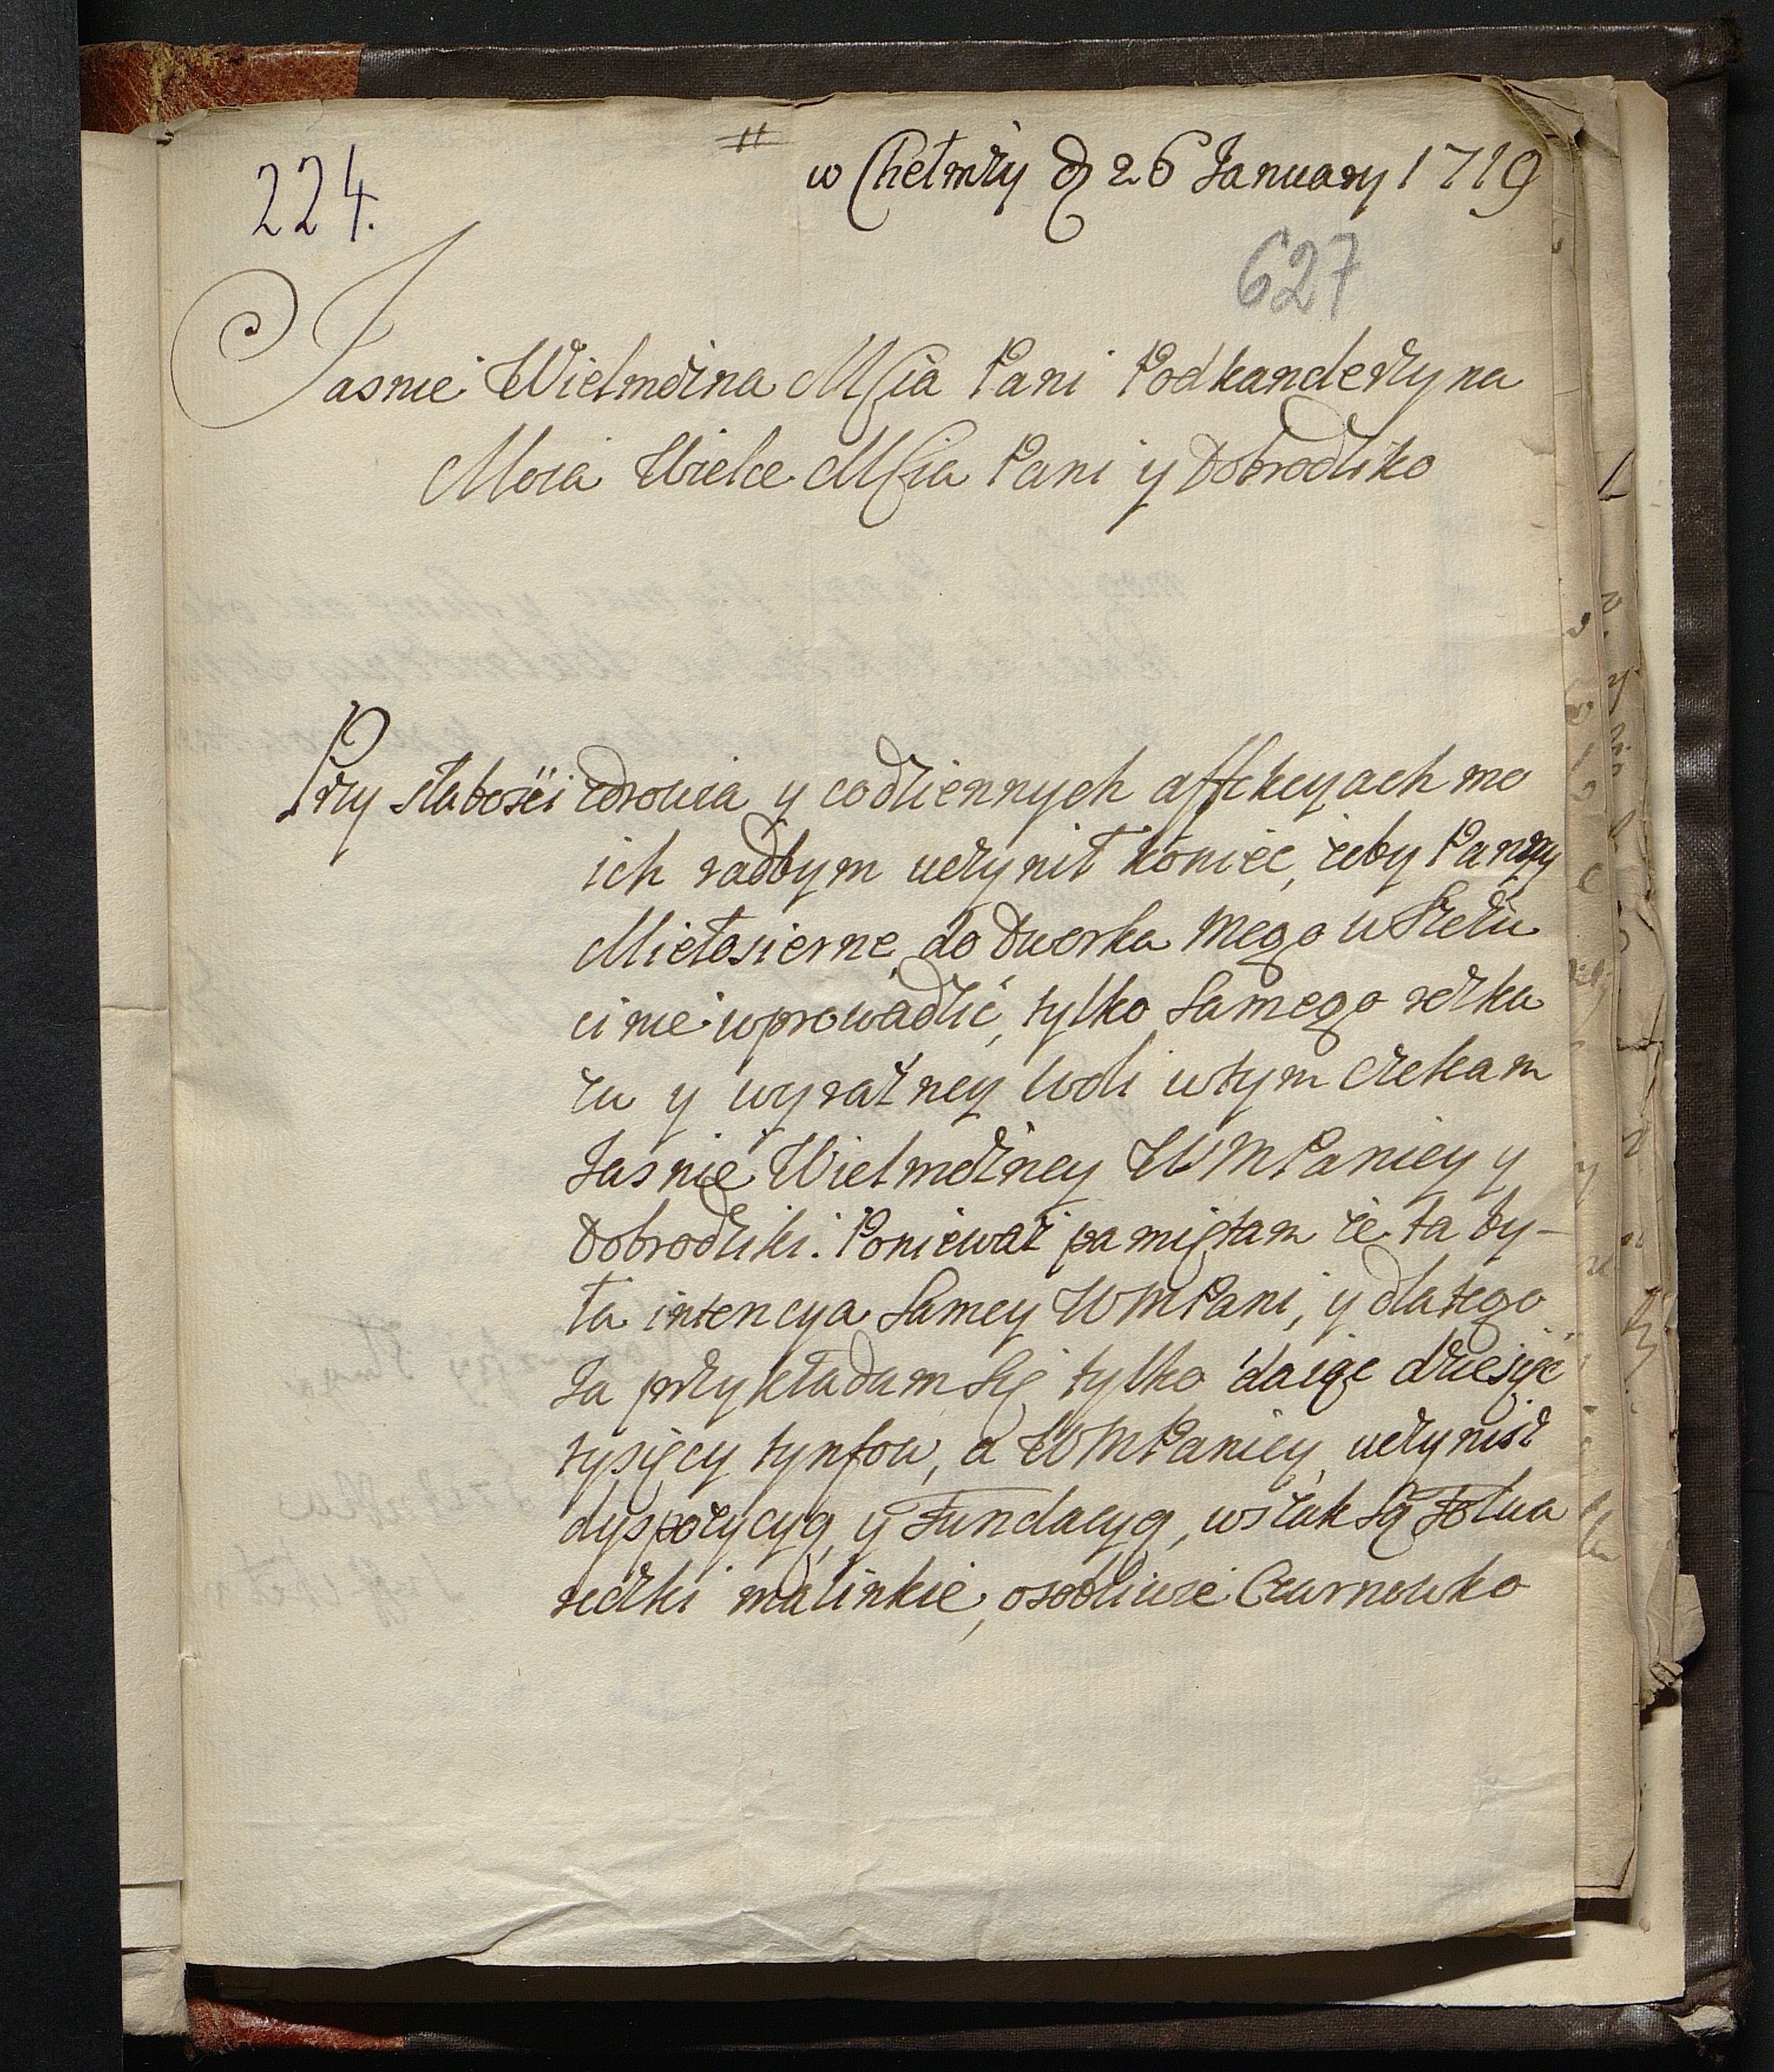 #
w Chełmży d 26 January 1719
224.
627
Jasnie Wielmożna Mścia Pani Podkanclerzyna
Moia Wielce Mścia Pani y Dobrodziko
Przy słabości zdrowia y codziennych affekcyach mo
ich radbym uczynił koniec, żeby Panny
Miełosierne do dworka mego w Szczu
ci nie wprowadzić, tylko Samego rozka
zu y wyrazney woli wtym czekam
Jasnie Wielmożney WMPaniey y
Dobrodziki. Ponieważ pamiętam że ta by-
ła intencya Samey WMPani, y dlatego
Ja przykładam Się tylko daiąc dziesięć
tysięcy tynfow, a WMPaniey uczynisz
dyspozycyą y Fundacyą, wszak Są Folwa
reczki malinkie, osobliwie Czarnowko